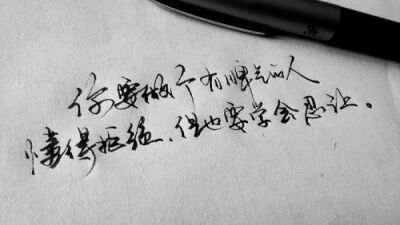 你要做个有脾气的人
懂得拒绝，但也要学会忍让。